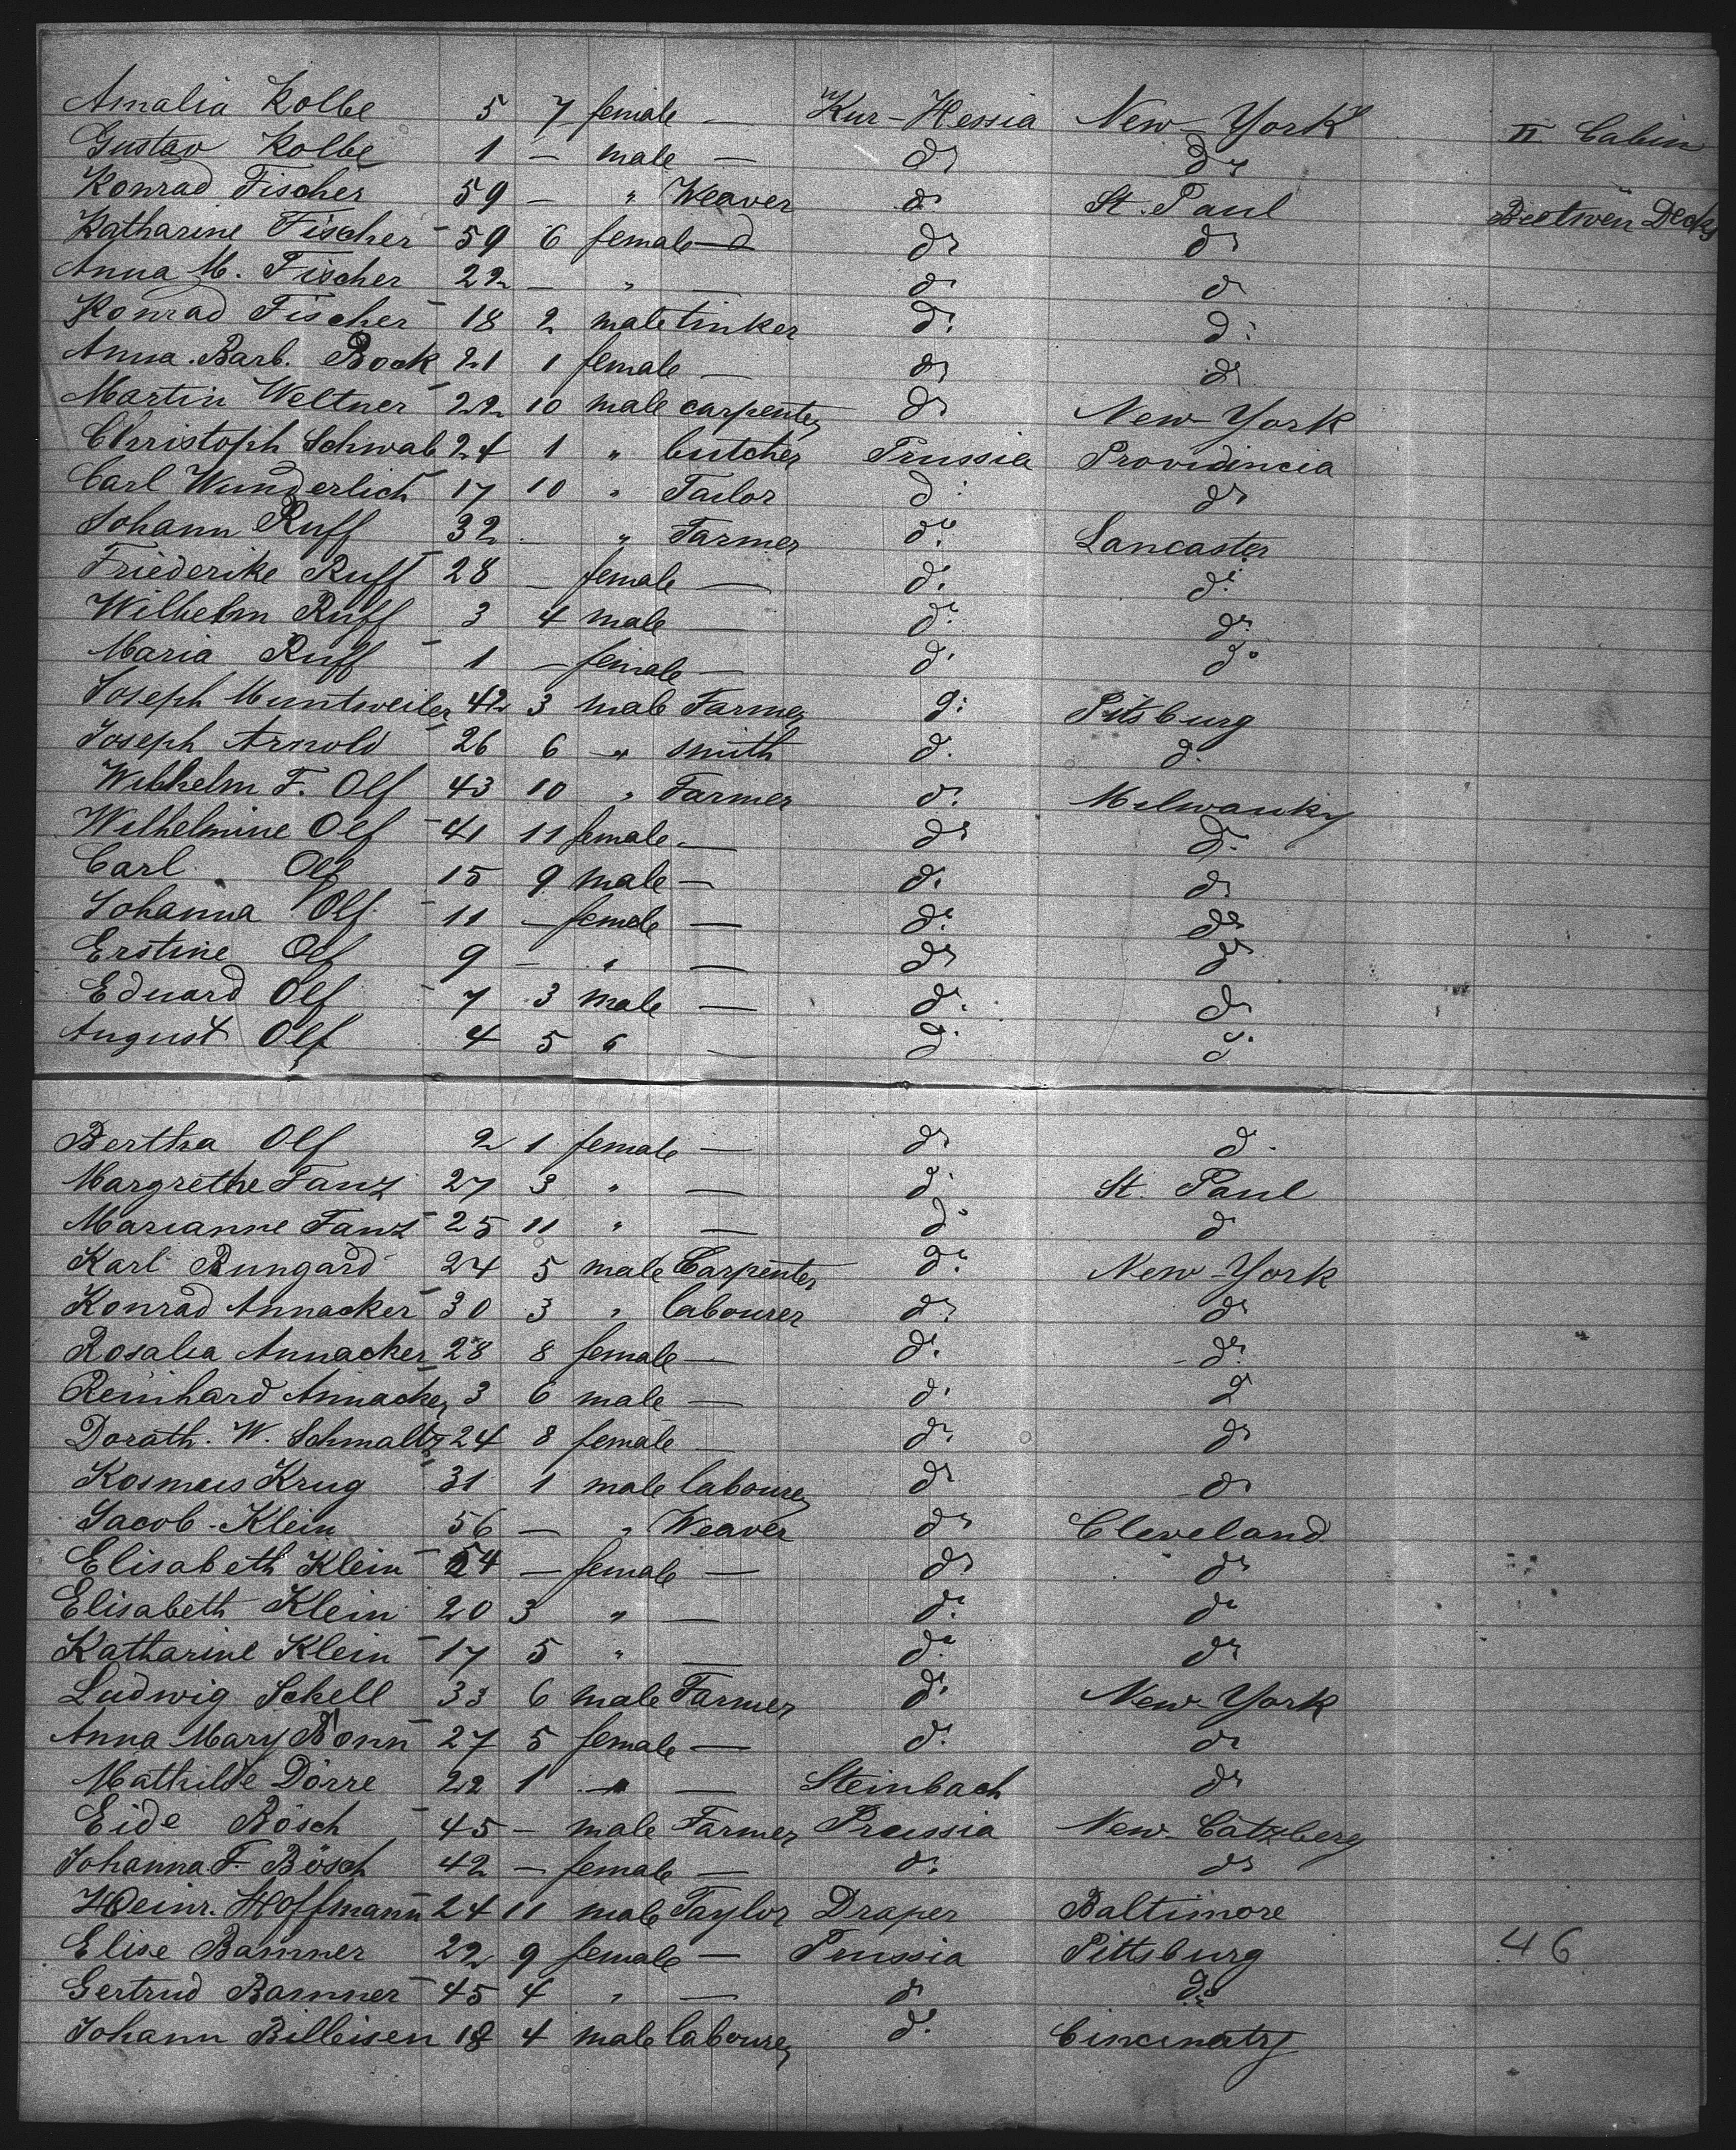 Amalia Kolbe 5 7 female — Kur-Hessia New-York II. Cabin
Gustav Kolbe 1 — male — do do
Konrad Fischer 59 — " Weaver do St. Paul Beetwen Decks
Katharine Fischer 59 6 female — do do
Anna M. Fischer 22 — " — do do
Konrad Fischer 18 2 male tinker do do
Anna Barb. Bock 21 1 female — do do
Martin Weltner 22 10 male carpenter do New-York
Christoph Schwab 24 1 " butcher Prussia Providincia
Carl Wunderlich 17 10 " Tailor do do
Johann Ruff 32 " Farmer do Lancaster
Friederike Ruff 28 — female — do do
Wilhelm Ruff 3 4 male — do do
Maria Ruff 1 — female — do do
Joseph Muntweiler 42 3 male Farmer do Pitsburg
Joseph Arnold 26 6 " smith do do
Wilhelm F. Olf 43 10 " Farmer do Milwauky
Wilhelmine Olf 41 11 female — do do
Carl Olf 15 9 male — do do
Johanna Olf 11 — female — do do
Erstine Olf 9 — " — do do
Eduard Olf 7 3 male — do do
August Olf 4 5 " — do do
Bertha Olf 2 1 female — do do
Margrethe Fanz 27 3 " — do St. Paul
Marianne Fanz 25 11 " — do do
Karl Bungard 24 5 male Carpenter do New-York
Konrad Annacker 30 3 " labourer do do
Rosalia Annacker 28 8 female — do do
Reinhard Annacker 3 6 male — do do
Dorath. W. Schmaltz 24 8 female — do do
Kosmas Krug 31 1 male labourer do do
Jacob Klein 56 — " Weaver do Cleveland
Elisabeth Klein 54 — female — do do
Elisabeth Klein 20 3 " — do do
Katharine Klein 17 5 " — do do
Ludwig Schell 33 6 male Farmer do New-York
Anna Mary Bonn 27 5 female — do do
Mathilde Dörre 22 1 " — Steinbach do
Eide Bösch 45 — male Farmer Prussia New-Catzberg
Johanna F. Bösch 42 — female — do do
Heinr. Hoffmann 24 11 male Taylor Draper Baltimore
Elise Bamner 22 9 female — Prussia Pittsburg 46
Gertrud Bamner 45 4 " — do do
Johann Billeisen 18 4 male labourer do Cincinaty